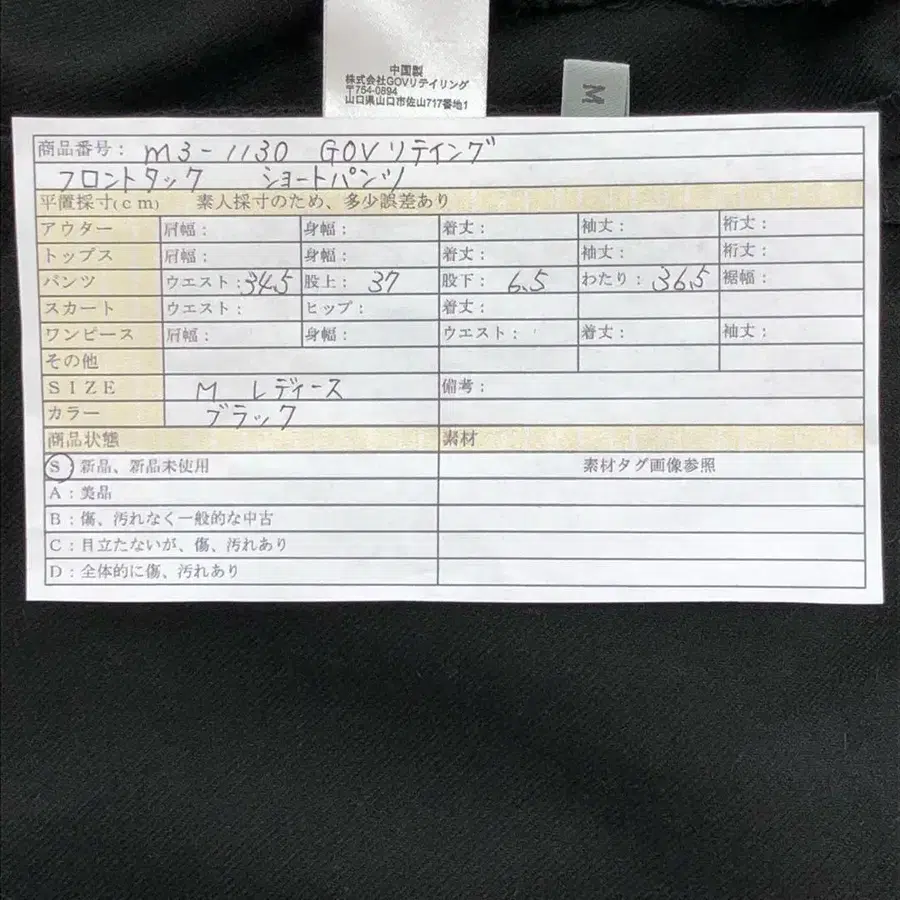 中国製
株式会社GOVリテイリング
〒754-0894
山口県山口市佐山717番地1
M
商品番号： m3-1130 GOVリテイング
フロントタック ショートパンツ
平置採寸(cm) 素人採寸のため、多少誤差あり
アウター 肩幅： 身幅： 着丈： 袖丈： 裄丈：
トップス 肩幅： 身幅： 着丈： 袖丈： 裄丈：
パンツ ウエスト：34.5 股上： 37 股下： 6.5 わたり： 36.5 裾幅：
スカート ウエスト： ヒップ： 着丈：
ワンピース 肩幅： 身幅： ウエスト： 着丈： 袖丈：
その他
SIZE M レディース 備考：
カラー ブラック
商品状態 素材
S：新品、新品未使用 素材タグ画像参照
A：美品
B：傷、汚れなく一般的な中古
C：目立たないが、傷、汚れあり
D：全体的に傷、汚れあり